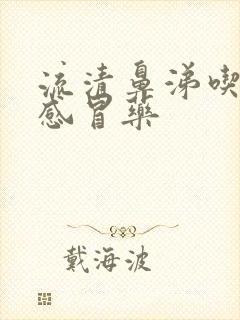 流清鼻涕喫
感冒藥
戴海波